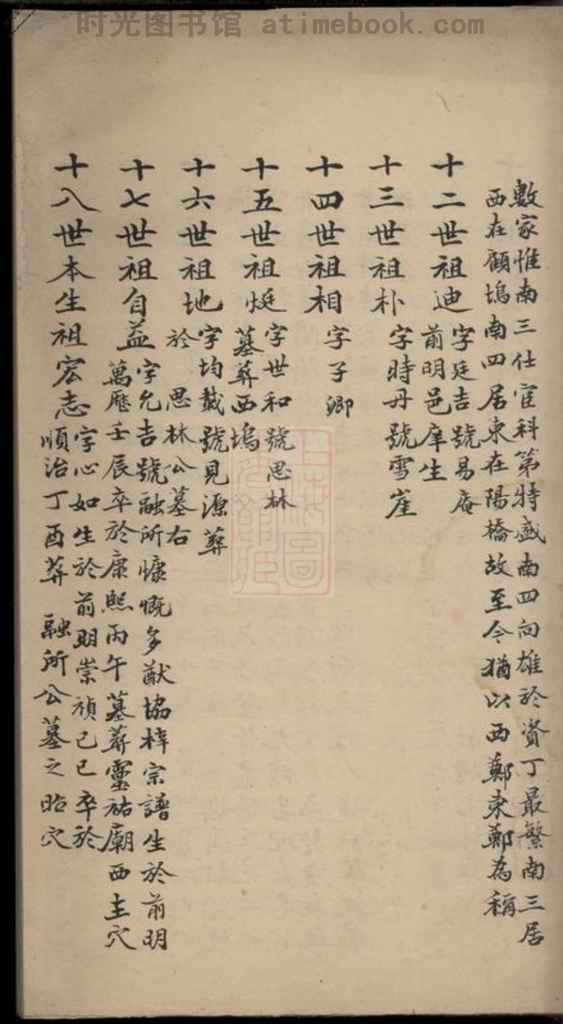 时光图书馆 atimebook.com
數家惟南三仕宦科第特盛南四向雄於資丁最繁南三居
西在顧塢南四居東在陽橋故至今猶以西鄭東鄭為稱
十二世祖迪
字廷吉號易庵
前明邑庠生
十三世祖朴
字時丹號雪崖
十四世祖相
字子卿
十五世祖烶
字世和號思林
墓葬西塢
十六世祖地
字均載號見源葬
於 思林公墓右
十七世祖自益
字允吉號融所慷慨多猷協梓宗譜生於前明
萬歷壬辰卒於康熙丙午墓葬靈祐廟西主穴
十八世本生祖宏志
字心如生於前明崇禎己巳卒於
順治丁酉葬 融所公墓之昭穴